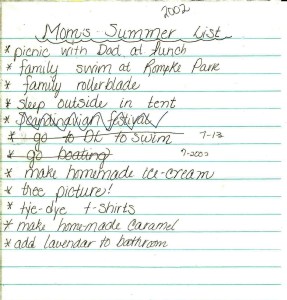 2002
Mom's Summer List
* picnic with Dad at lunch
* family swim at Kompke Park
* family rollerblade
* sleep outside in tent
* Scandinavian festival
* go to DL to swim 7-13
* go boating 7-2002
* make homemade ice-cream
* tree picture!
* tye-dye t-shirts
* make homemade caramel
* add lavendar to bathroom